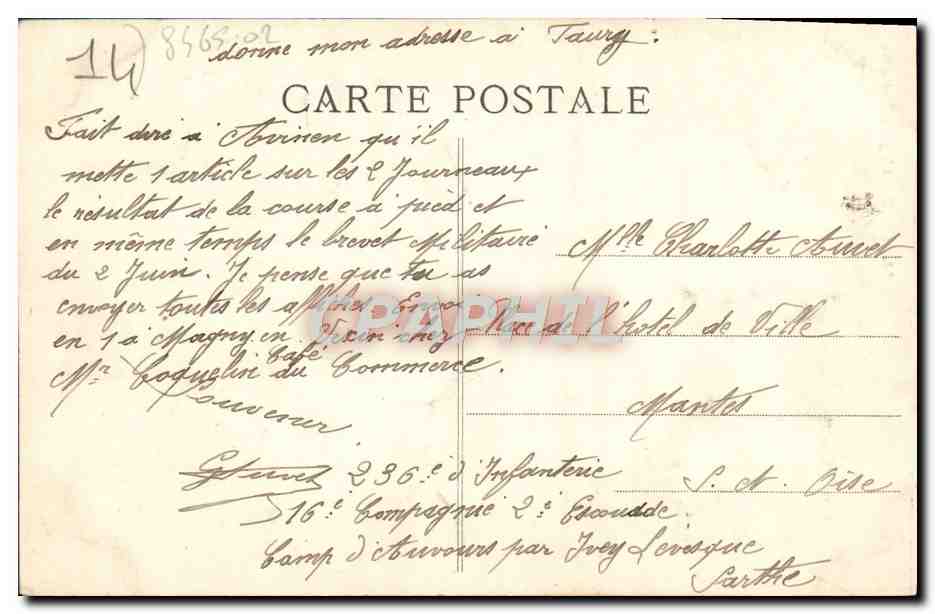 14
8565.02
donne mon adresse a Taurg.
CARTE POSTALE
Fait dire a qu'il
mette 1 article sur les 2 Journeaux
le résultat de la course à pièd et
en même temps le brevet Militaire
du 2 Juin. Je pense que tu as
envoyer toutes les affiches. Envoi
en 1 a Magny en Vexin chez
Café
Mr Coquelin du Commerce.
Souvenir
Mlle Charlotte Auvet
Place de l'hotel de Ville
Mantes
S. et. Oise
236e d'Infanterie
16e Compagnie 2e Escouade.
Camp d'Auvours par Ivey Levesque
Sarthe
CPAPHIL